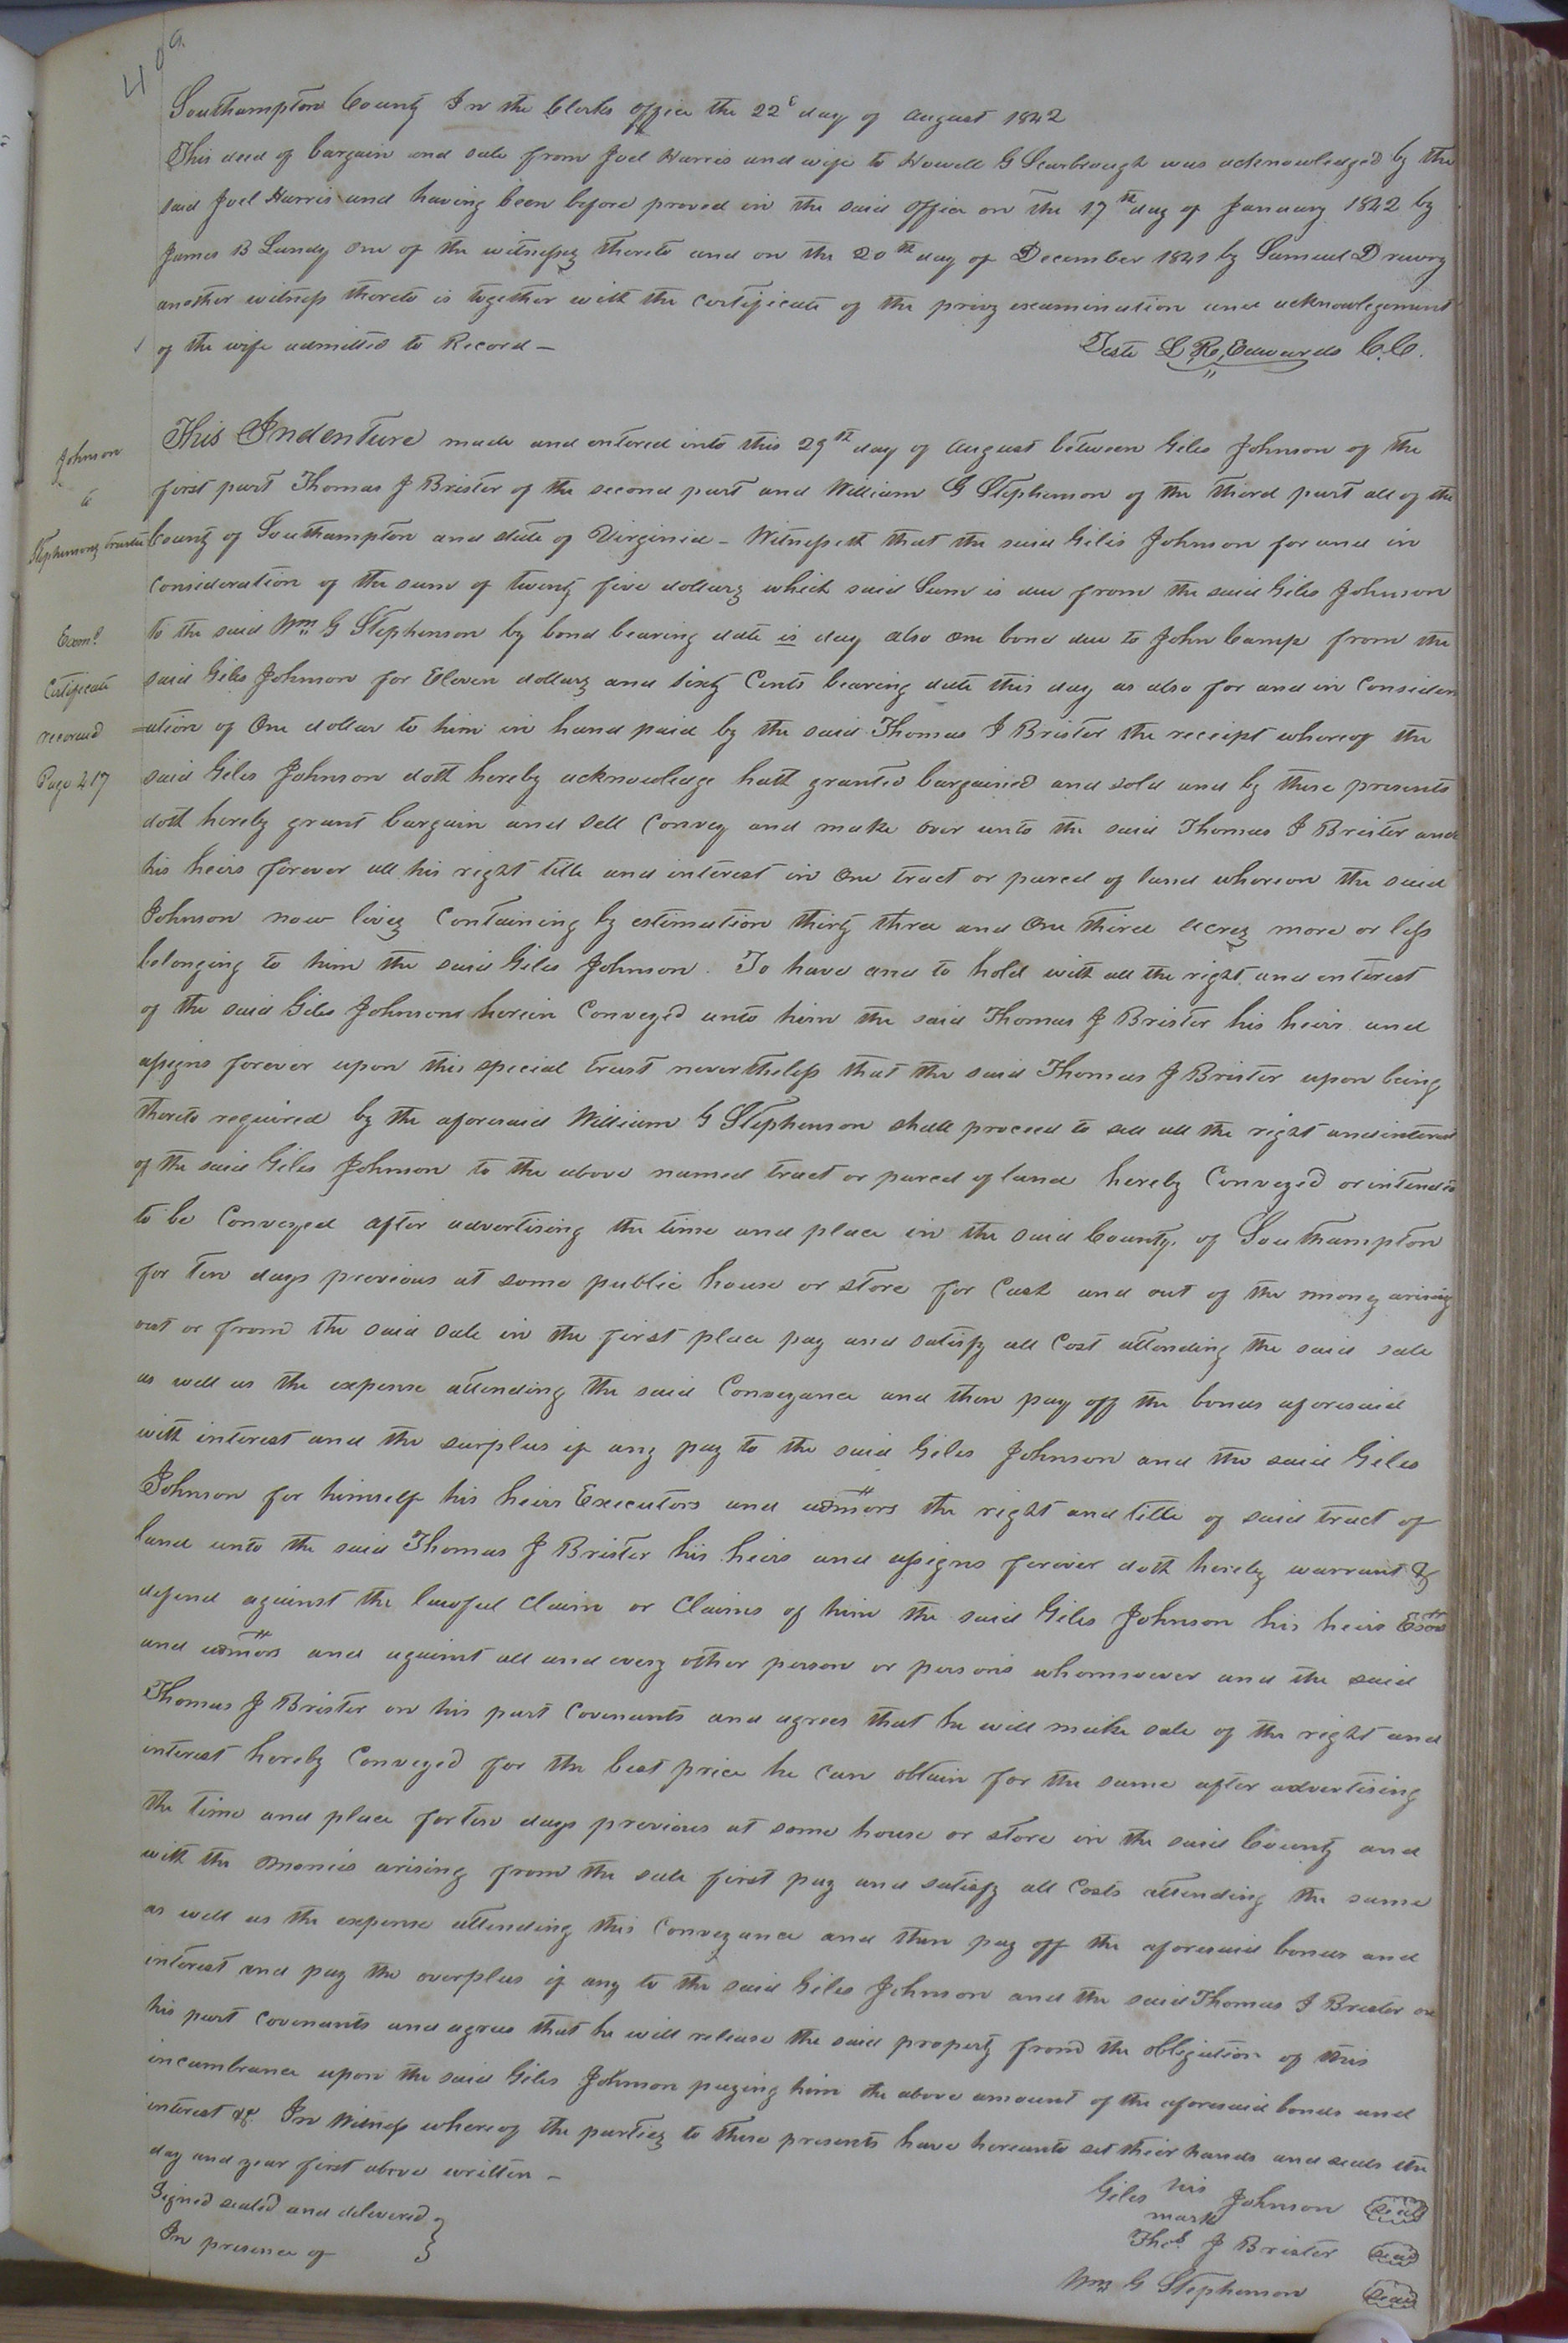 Southampton County In the Clerks office the 22d day of August 1842
This deed of bargain and sale from Joel Harris and wife to Howell G Scarbrough was acknowledged by the
said Joel Harris and having been before proved in the said office on the 17th day of January 1842 by
James B Lundy one of the witnesses thereto and on the 20th day of December 1841 by Samuel Drewry
another witness thereto is together with the certificate of the privy examination and acknowlegement
of the wife admitted to Record —
Teste L R, Edwards C.C.
Johnson
to
Stephensons trustee
Examd
Certificate
recorded
Page 417
This Indenture made and entered into this 29th day of August between Giles Johnson of the
first part Thomas J Brister of the second part and William G Stephenson of the third part all of the
County of Southampton and state of Virginia - Witnesseth that the said Giles Johnson for and in
Consideration of the sum of twenty five dollars which said Sum is due from the said Giles Johnson
to the said Wm. G Stephenson by bond bearing date is day also one bond due to John Camp from the
said Giles Johnson for Eleven dollars and sixty Cents bearing date this day as also for and in Consider
=ation of One dollar to him in hand paid by the said Thomas J Brister the receipt whereof the
said Giles Johnson doth hereby acknowledge hath granted bargained and sold and by these presents
doth hereby grant bargain and sell Convey and make over unto the said Thomas J Brister and
his heirs forever all his right title and interest in One tract or parcel of land whereon the said
Johnson now lives Containing by estimation thirty three and One third acres more or less
belonging to him the said Giles Johnson. To have and to hold with all the right and interest
of the said Giles Johnsons herein Conveyed unto him the said Thomas J Brister his heirs and
assigns forever upon this special trust nevertheless that the said Thomas J Brister upon being
thereto required by the aforesaid William G Stephenson shall proceed to sell all the right and interest
of the said Giles Johnson to the above named tract or parcel of land hereby Conveyed or intended
to be Conveyed after advertising the time and place in the said County of Southampton
for ten days previous at some public house or store for Cash and out of the money arising
out or from the said sale in the first place pay and satisfy all Cost attending the said sale
as well as the expense attending the said Conveyance and then pay off the bonds aforesaid
with interest and the surplus if any pay to the said Giles Johnson and the said Giles
Johnson for himself his heirs Executors and admors the right and title of said tract of
land unto the said Thomas J Brister his heirs and assigns forever doth hereby warrant &
defend against the lawful Claim or Claims of him the said Giles Johnson his heirs Exors
and admors and against all and every other person or persons whomsoever and the said
Thomas J Brister on his part Covenants and agrees that he will make sale of the right and
interest hereby Conveyed for the best price he can obtain for the same after advertising
the time and place for ten days previous at some house or store in the said County and
with the monies arising from the sale first pay and satisfy all Costs attending the same
as well as the expense attending this Conveyance and then pay off the aforesaid bonds and
interest and pay the overplus if any to the said Giles Johnson and the said Thomas J Brister on
his part Covenants and agrees that he will release the said property from the obligation of this
incumbrance upon the said Giles Johnson paying him the above amount of the aforesaid bonds and
interest &c. In Witness whereof the parties to these presents have hereunto set their hands and seals the
day and year first above written —
Signed sealed and delivered }
In presence of
Giles his Johnson seal
mark
Thos. J Brister seal
Wm G Stephenson seal